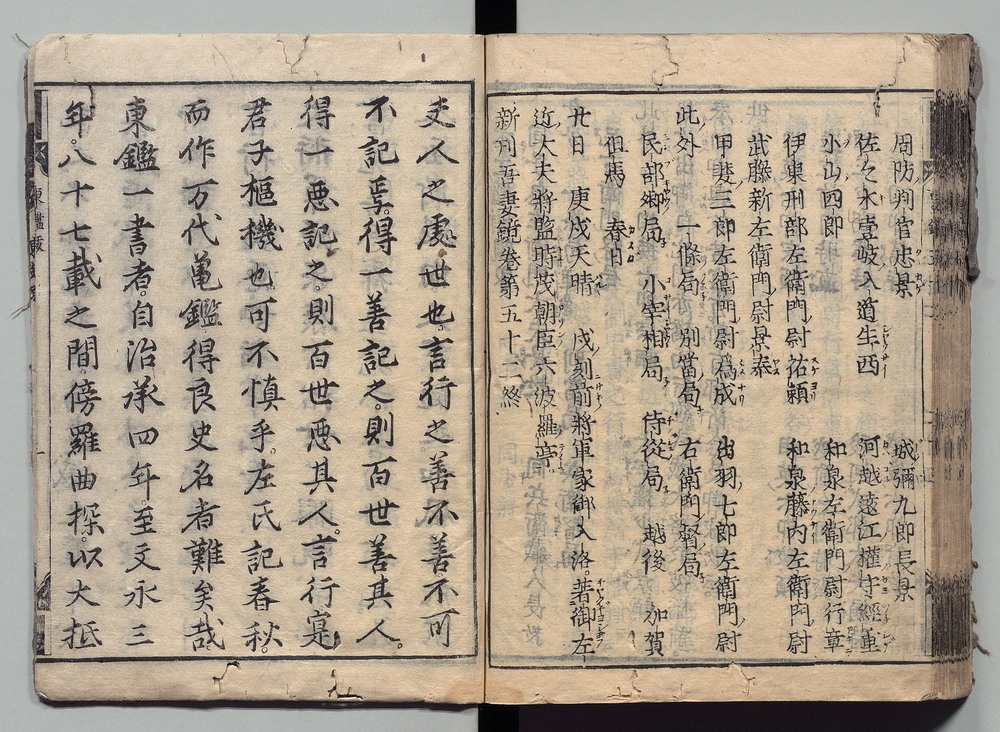 周防判官忠景 城彌九郎長景
佐々木壹岐入道生西 河越遠江權守經重
小山四郎 和泉左衛門尉行章
伊東刑部左衛門尉祐頼 和泉藤内左衛門尉
武藤新左衛門尉景泰
甲斐三郎左衛門尉爲成 出羽七郎左衛門尉
此外 一條局 別當局 右衛門督局
民部卿局 小宰相局 侍從局 越後 加賀
但馬 春日
廿日 庚戌天晴 戌刻前將軍家御入洛。著御左
近大夫將監時茂朝臣六波羅亭。
新刊吾妻鏡卷第五十二終
夫人之處世也。言行之善不善不可
不記焉。得一善記之。則百世善其人。
得一惡記之。則百世惡其人。言行寔
君子樞機也。可不慎乎。左氏記春秋。
而作万代亀鑑。得良史名者難矣哉
東鑑一書者。自治承四年至文永三
年。八十七載之間傍羅曲探。以大抵